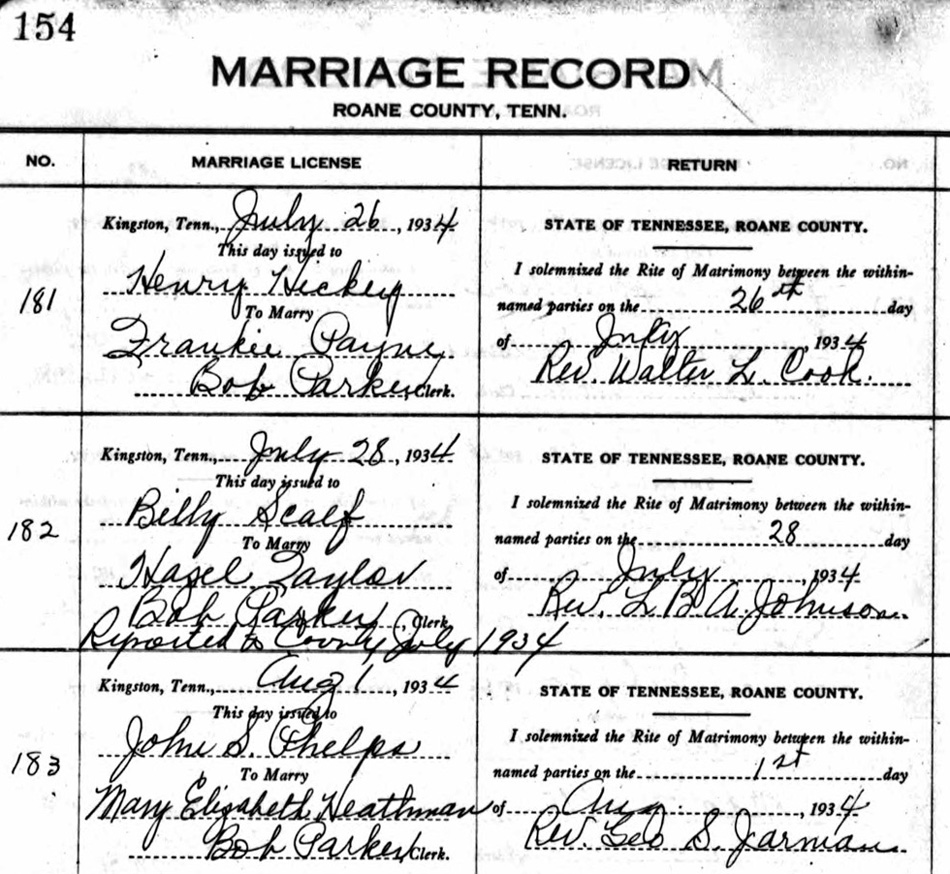 154
MARRIAGE RECORD
ROANE COUNTY, TENN.
NO. MARRIAGE LICENSE RETURN
181
Kingston, Tenn., July 26, 1934
This day issued to
Henry Hickey
To Marry
Frankie Payne
Bob Parker Clerk.
STATE OF TENNESSEE, ROANE COUNTY.
I solemnized the Rite of Matrimony between the within-
named parties on the 26th day
of July 1934
Rev. Walter L. Cook.
182
Kingston, Tenn., July 28, 1934
This day issued to
Billy Scalf
To Marry
Hazel Taylor
Bob Parker, Clerk
Reported to County July 1934
STATE OF TENNESSEE, ROANE COUNTY.
I solemnized the Rite of Matrimony between the within-
named parties on the 28 day
of July, 1934
Rev. L. B. A. Johnson
183
Kingston, Tenn., Aug 1, 1934
This day issued to
John S. Phelps
To Marry
Mary Elisabeth Heathman
Bob Parker Clerk.
STATE OF TENNESSEE, ROANE COUNTY.
I solemnized the Rite of Matrimony between the within-
named parties on the 1st day
of Aug, 1934
Rev. Geo S. Jarman